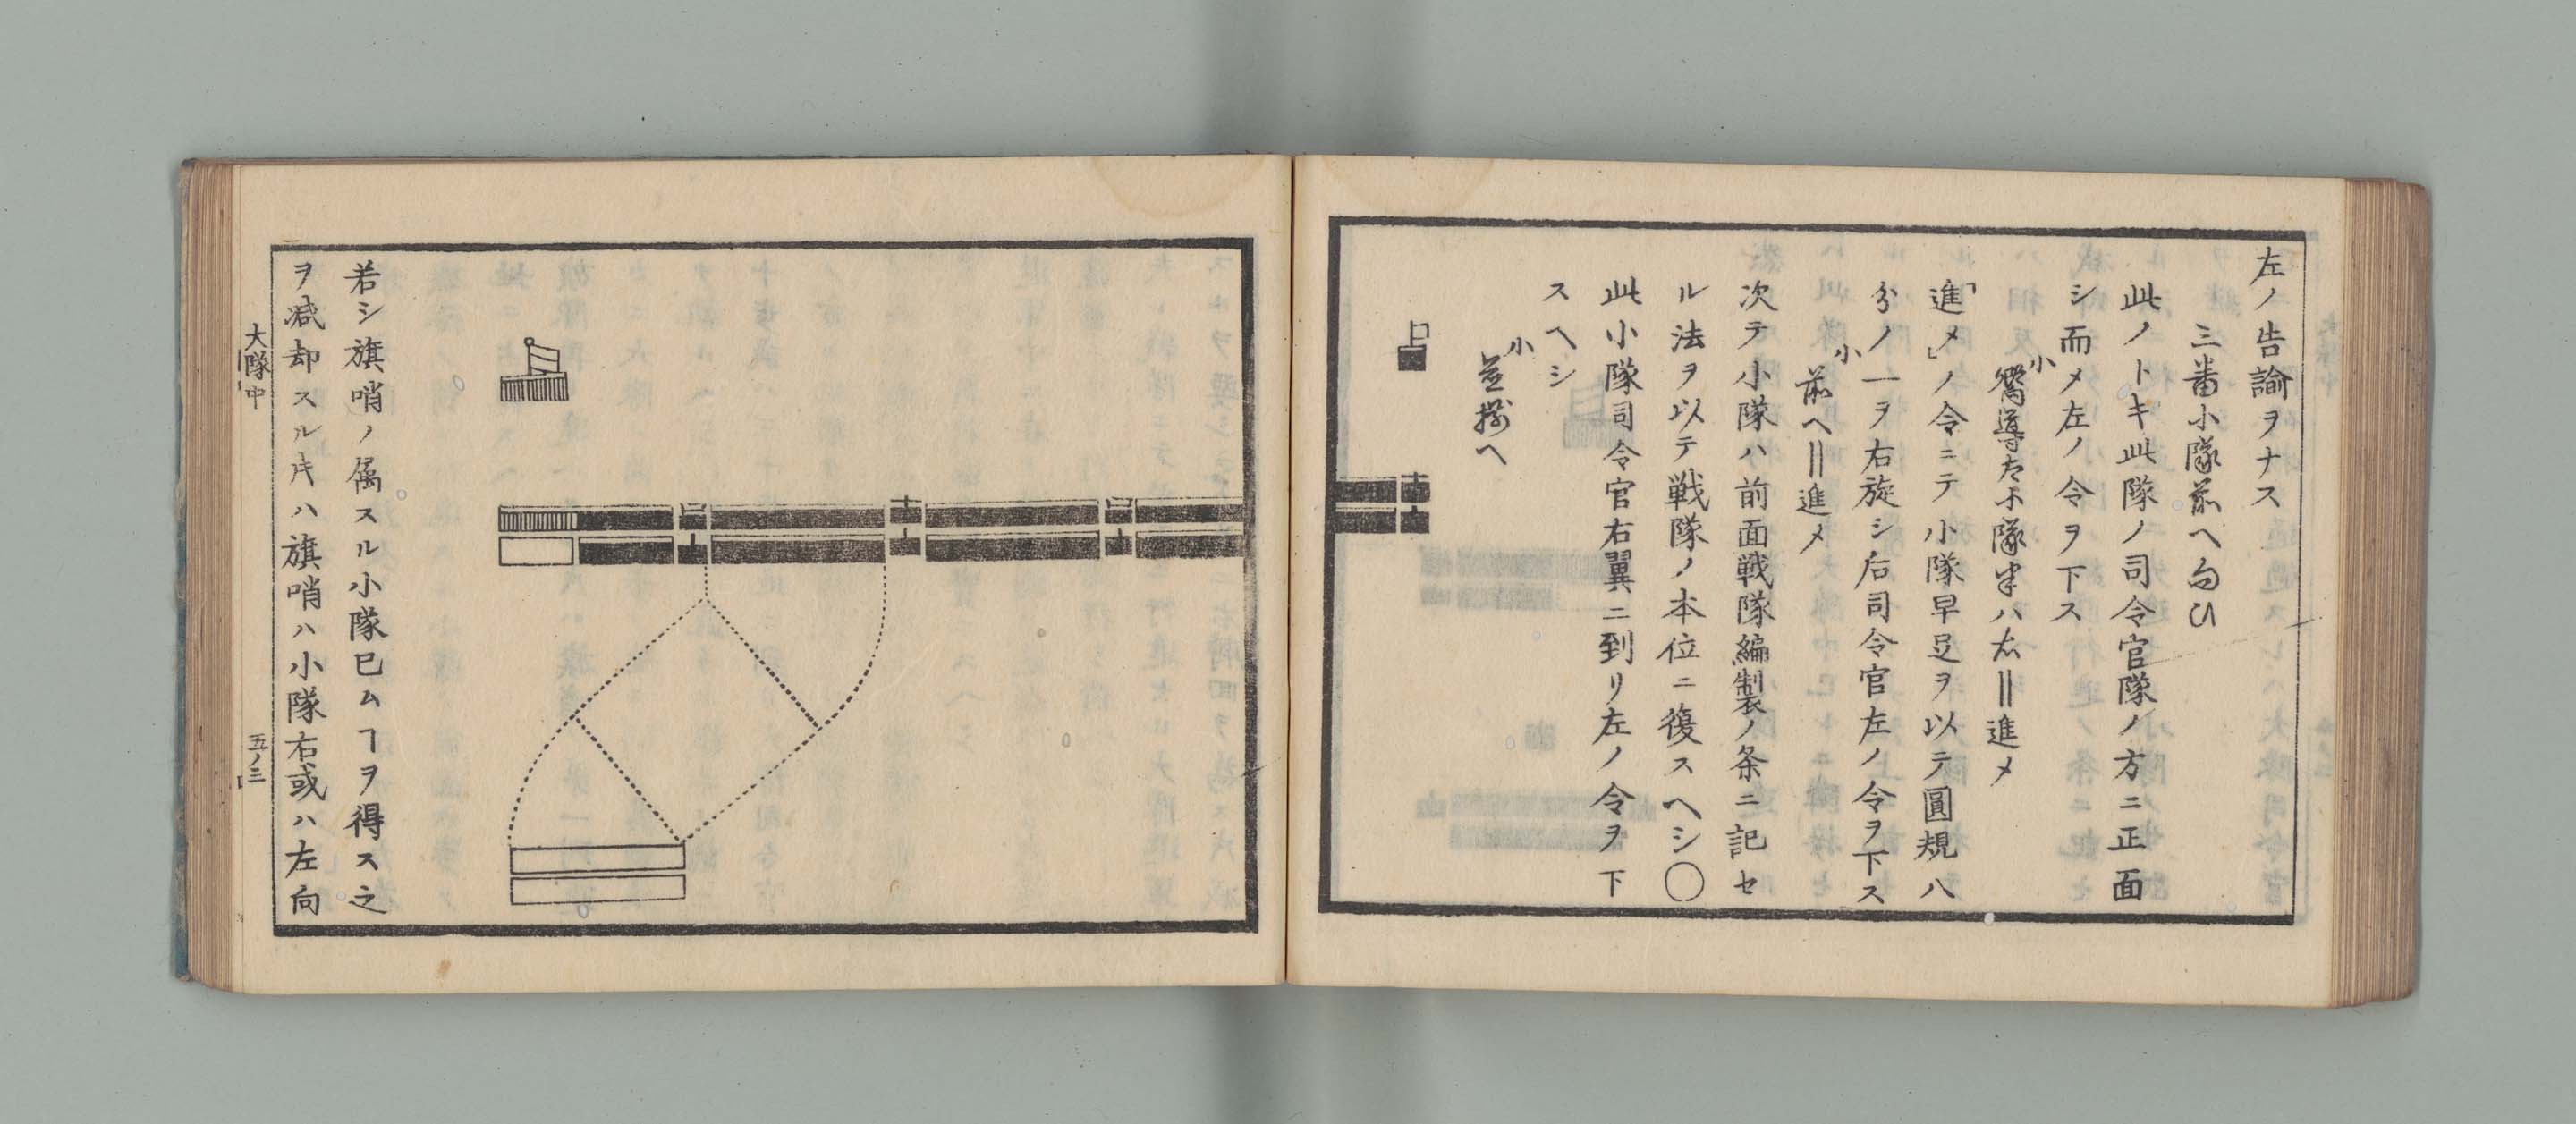 左ノ告諭ヲナス
三番小隊前へ向ひ
此ノトキ此隊ノ司令官隊ノ方ニ正面
シ而メ左ノ令ヲ下ス
小
嚮導左小隊半ハ右‖進メ
「進メ」ノ令ニテ小隊早足ヲ以テ圓規八
分ノ一ヲ右旋シ后司令官左ノ令ヲ下ス
小
前へ‖進メ
次テ小隊ハ前面戦隊編製ノ条ニ記セ
ル法ヲ以テ戦隊ノ本位ニ復スヘシ〇
此小隊司令官右翼ニ到リ左ノ令ヲ下
スヘシ
小
並揃へ
若シ旗哨ノ属スル小隊巳ムヿヲ得ス之
ヲ減却スル𪜈ハ旗哨ハ小隊右或ハ左向
大隊中
五ノ三